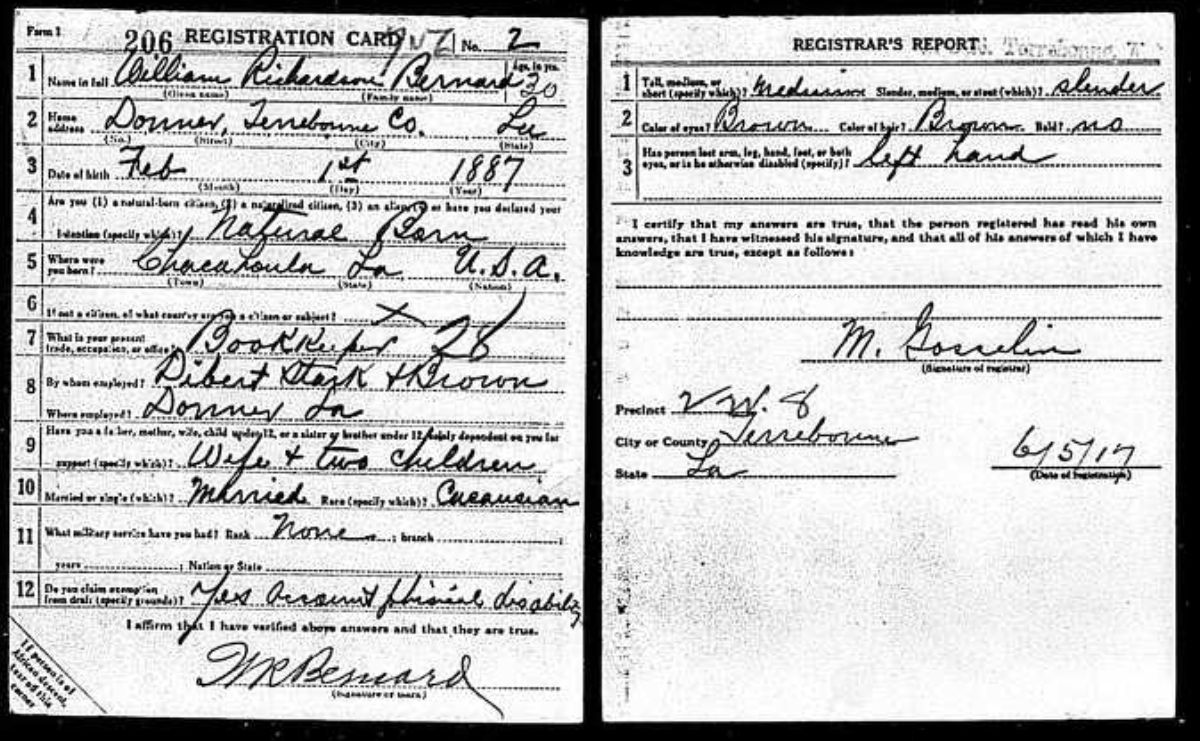 Form 1 206 REGISTRATION CARD No. 2
1 Name in full William Richardson Bernard Age, in yrs. 30
(Given name) (Family name)
2 Home address Donner, Terrebonne Co. La
(No.) (Street) (City) (State)
3 Date of birth Feb 1st 1887
(Month) (Day) (Year)
4 Are you (1) a natural-born citizen, (2) a naturalized citizen, (3) an alien, (4) or have you declared your
intention (specify which)? Natural Born
5 Where were you born? Chacahoula La U.S.A.
(Town) (State) (Nation)
6 If not a citizen, of what country are you a citizen or subject? X
7 What is your present trade, occupation, or office? Bookkeeper 28
8 By whom employed? Dibert Stark & Brown
Where employed? Donner La
9 Have you a father, mother, wife, child under 12, or a sister or brother under 12, solely dependent on you for
support (specify which)? Wife & two children
10 Married or single (which)? Married Race (specify which)? Caucusian
11 What military service have you had? Rank None ; branch ;
years ; Nation or State
12 Do you claim exemption from draft (specify grounds)? Yes account phisical disability
I affirm that I have verified above answers and that they are true.
WRBernard
(Signature or mark)
If person is of
African descent,
tear off this
corner
REGISTRAR'S REPORT
1 Tall, medium, or short (specify which)? Medium Slender, medium, or stout (which)? slender
2 Color of eyes? Brown Color of hair? Brown Bald? no
3 Has person lost arm, leg, hand, foot, or both eyes, or is he otherwise disabled (specify)? left hand
I certify that my answers are true, that the person registered has read his own
answers, that I have witnessed his signature, and that all of his answers of which I have
knowledge are true, except as follows:
M. Gosselin
(Signature of registrar)
Precinct W. 8
City or County Terrebonne
State La
6/5/17
(Date of registration)